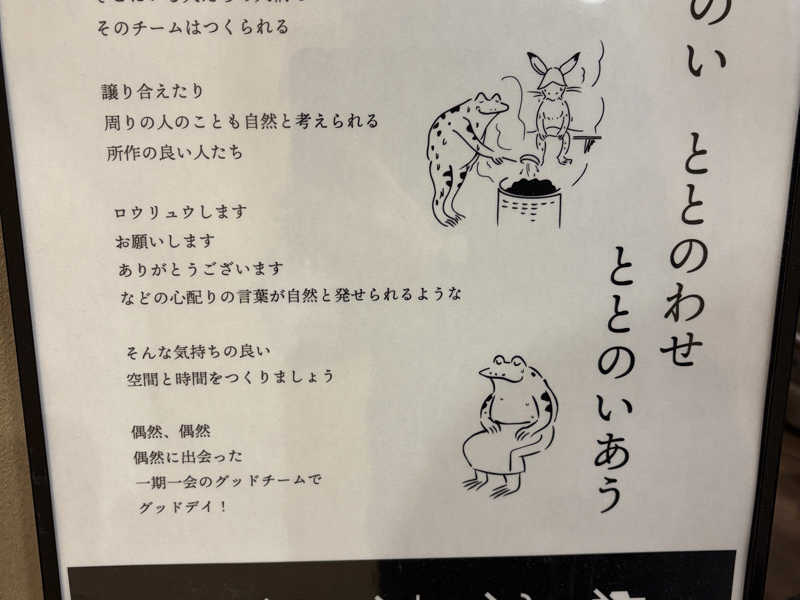 のい ととのわせ
ととのいあう
そのチームはつくられる
譲り合えたり
周りの人のことも自然と考えられる
所作の良い人たち
ロウリュウします
お願いします
ありがとうございます
などの心配りの言葉が自然と発せられるような
そんな気持ちの良い
空間と時間をつくりましょう
偶然、偶然
偶然に出会った
一期一会のグッドチームで
グッドデイ！